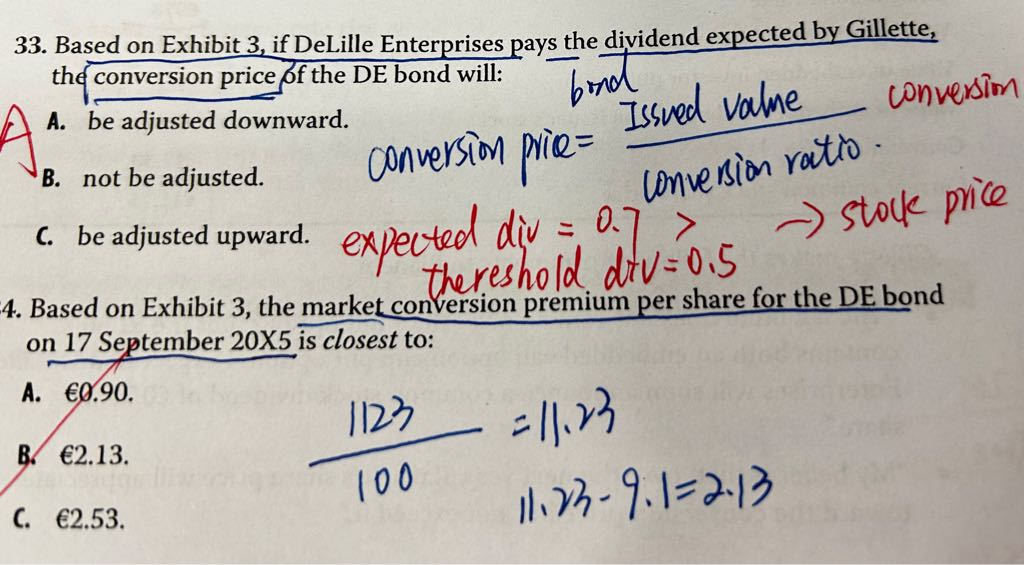 33. Based on Exhibit 3, if DeLille Enterprises pays the dividend expected by Gillette,
the conversion price of the DE bond will:
bond
A
A. be adjusted downward.
conversion price = Issued value
conversion ratio.
conversion
B. not be adjusted.
C. be adjusted upward.
expected div = 0.7 >
→ stock price
thereshold div = 0.5
4. Based on Exhibit 3, the market conversion premium per share for the DE bond
on 17 September 20X5 is closest to:
A. €0.90.
1123
100
= 11.23
B. €2.13.
11.23 - 9.1 = 2.13
C. €2.53.